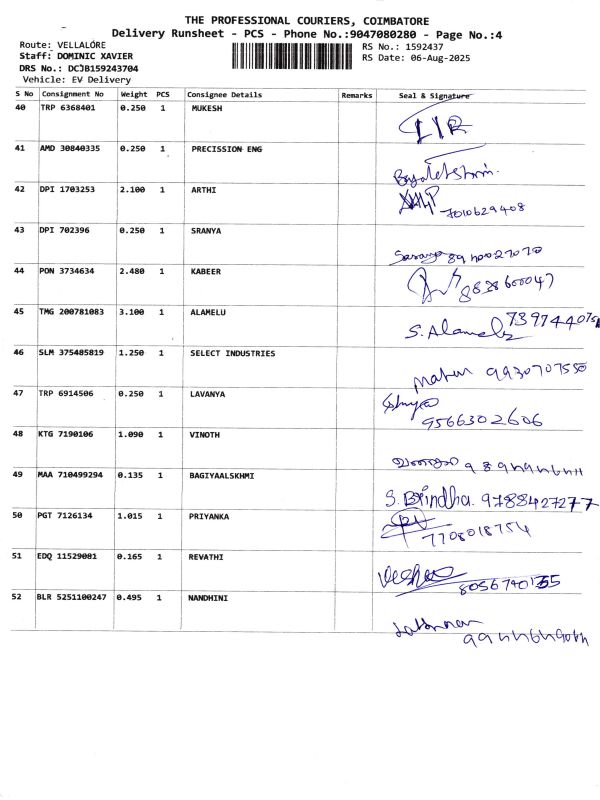 THE PROFESSIONAL COURIERS, COIMBATORE
Delivery Runsheet - PCS - Phone No.:9047080280 - Page No.:4
Route: VELLALORE
RS No.: 1592437
Staff: DOMINIC XAVIER
RS Date: 06-Aug-2025
DRS No.: DCJB159243704
Vehicle: EV Delivery
S No Consignment No Weight PCS Consignee Details Remarks Seal & Signature
40 TRP 6368401 0.250 1 MUKESH
41 AMD 30840335 0.250 1 PRECISSION ENG
42 DPI 1703253 2.100 1 ARTHI 7010629408
43 DPI 702396 0.250 1 SRANYA
44 PON 3734634 2.480 1 KABEER 8838600047
45 TMG 200781083 3.100 1 ALAMELU S. Alamelu
46 SLM 375485819 1.250 1 SELECT INDUSTRIES 9930707550
47 TRP 6914506 0.250 1 LAVANYA 9566302606
48 KTG 7190106 1.090 1 VINOTH
49 MAA 710499294 0.135 1 BAGIYAALSKHMI S. Brindha. 9788427277
50 PGT 7126134 1.015 1 PRIYANKA 7708018754
51 EDQ 11529081 0.165 1 REVATHI
52 BLR 5251100247 0.495 1 NANDHINI